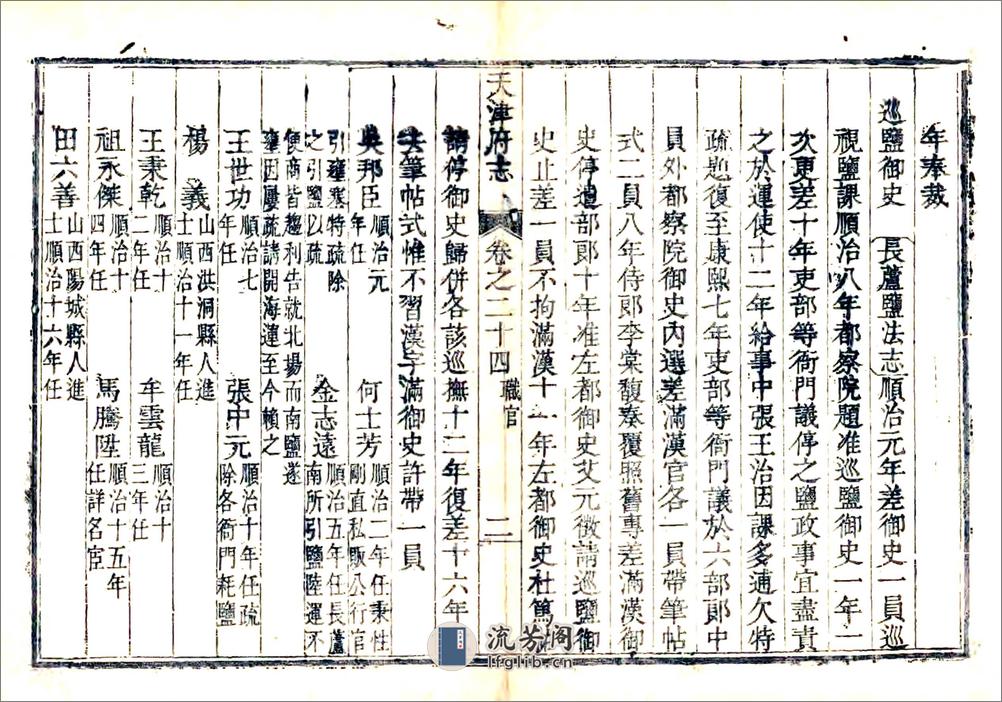 年奉裁
巡鹽御史 長蘆鹽法志 順治元年差御史一員巡
視鹽課順治八年都察院題准巡鹽御史一年一
次更差十年吏部等衙門議停之鹽政事宜盡責
之於運使十二年給事中張王治因課多逋欠特
疏題復至康熙七年吏部等衙門議於六部郞中
員外都察院御史內選差滿漢官各一員帶筆帖
式二員八年侍郞李棠馥奏覆照舊專差滿漢御
史停遣部郞十年准左都御史艾元徵請巡鹽御
史止差一員不拘滿漢十一年左都御史杜篤祜
天津府志 卷之二十四 職官 二
請停御史歸併各該巡撫十二年復差十六年
筆帖式惟不習漢字滿御史許帶一員
吳邦臣 順治元年任 何士芳 順治二年任秉性剛直私販公行官
引壅塞特疏除之引鹽以疏 金志遠 順治五年任長蘆南所引鹽陸運不
便商皆趨利告就北場而南鹽遂
壅因屢疏請開海運至今賴之
王世功 順治七年任 張中元 順治十年任疏除各衙門耗鹽
楊義 山西洪洞縣人進士順治十一年任
王秉乾 順治十二年任 牟雲龍 順治十三年任
祖永傑 順治十四年任 馬騰陞 順治十五年任詳名宦
田六善 山西陽城縣人進士順治十六年任
流芳閣
lfglib.cn